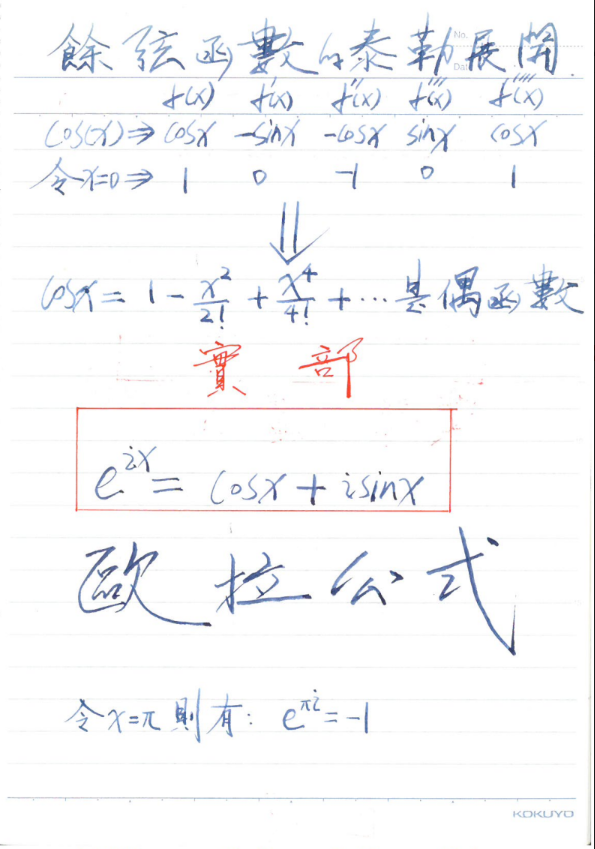 餘弦函數的泰勒展開
No.
Date
f(x) f'(x) f''(x) f'''(x) f''''(x)
cos(x)⇒ cosx -sinx -cosx sinx cosx
令x=0⇒ 1 0 -1 0 1
⇓
cosx = 1 - x²/2! + x⁴/4! + … 是偶函數
實部
e^{ix} = cosx + isinx
歐拉公式
令x=π則有: e^{πi}=-1
KOKUYO